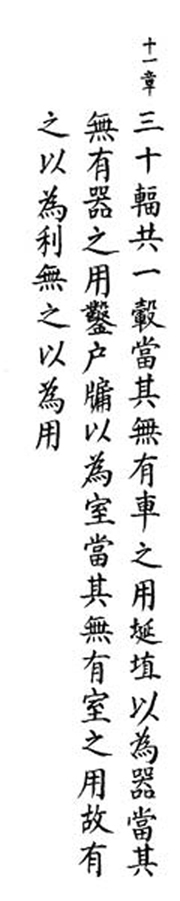 十一章
三十輻共一轂當其無有車之用埏埴以為器當其
無有器之用鑿户牖以為室當其無有室之用故有
之以為利無之以為用